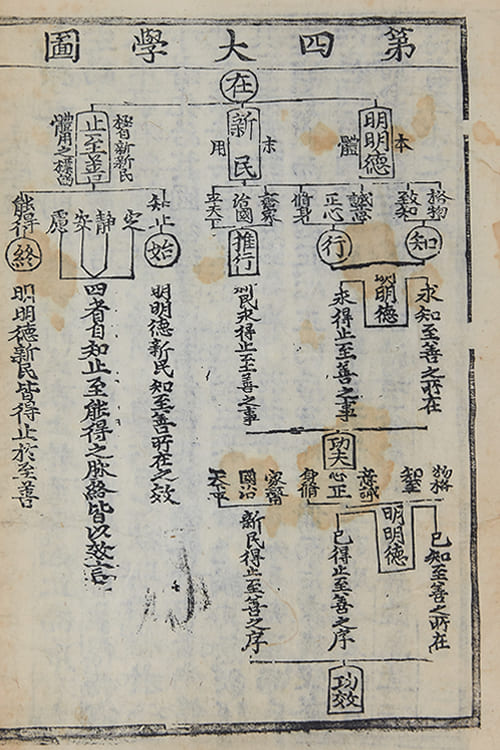 第四大學圖
在
本
明明德
體
末
新民
用
極自新新民
止至善
體用之標的
格物
致知
誠意
正心
修身
齊家
治國
平天下
知止
定
靜
安
慮
能得
知
行
推行
始
終
求知至善之所在
明明德
求得止至善之事
新民求得止至善之事
明明德新民知至善所在之效
四者自知止至能得之脉絡皆以效言
明明德新民皆得止於至善
功夫
物格
知至
意誠
心正
身修
家齊
國治
天下平
已知至善之所在
明明德
已得止至善之序
新民得止至善之序
功效